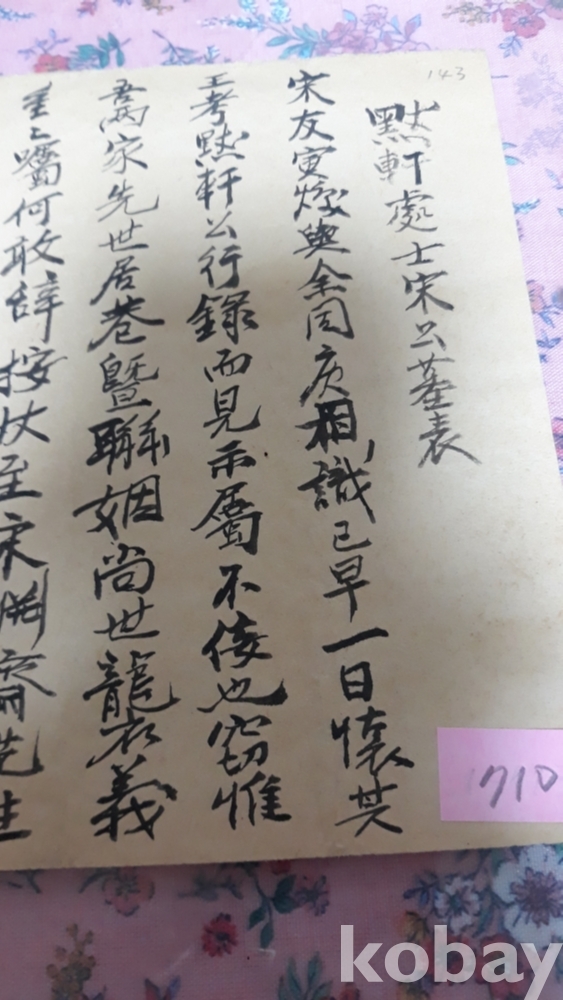 143
默軒處士宋公墓表
宋友寅燮與余同庚相識已早一日懷其
王考默軒公行錄而見示屬不佞也窃惟
吾家先世居巷暨聯姻尚世龍衣義
重之囑何敢辞按狀至宋 齋先生
1710
kobay